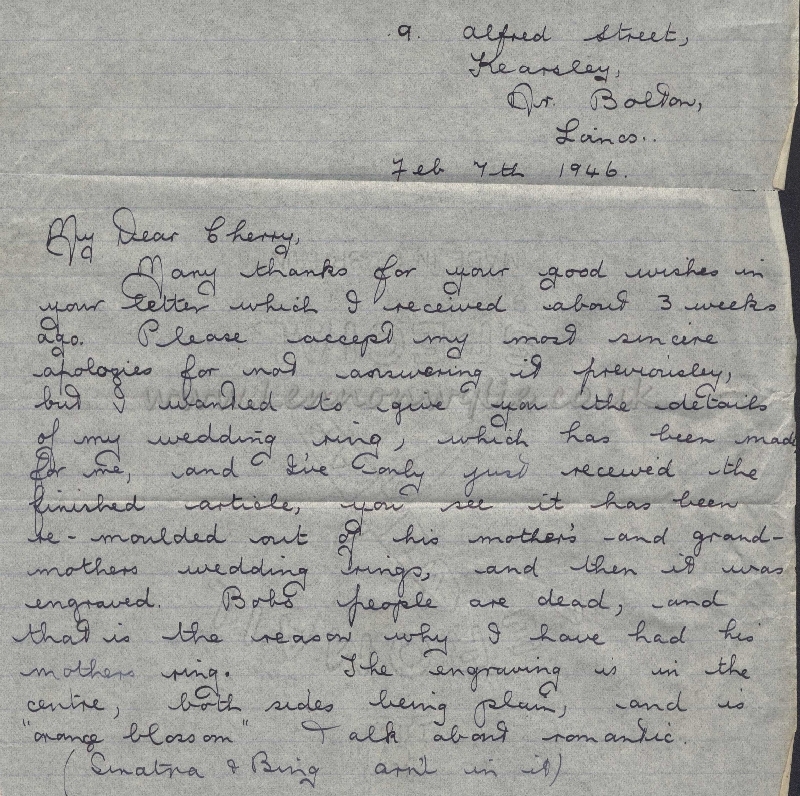 9. Alfred Street,
Kearsley,
Nr. Bolton,
Lancs..
Feb 7th 1946.
My Dear Cherry,
Many thanks for your good wishes in
your letter which I received about 3 weeks
ago. Please accept my most sincere
apologies for not answering it previously,
but I wanted to give you the details
of my wedding ring, which has been made
for me, and I've only just received the
finished article, you see it has been
re-moulded out of his mother's and grand-
mothers wedding rings, and then it was
engraved. Bobs people are dead, and
that is the reason why I have had his
mothers ring. The engraving is in the
centre, both sides being plain, and is
"orange blossom" Talk about romantic.
(Sinatra & Bing arn't in it)